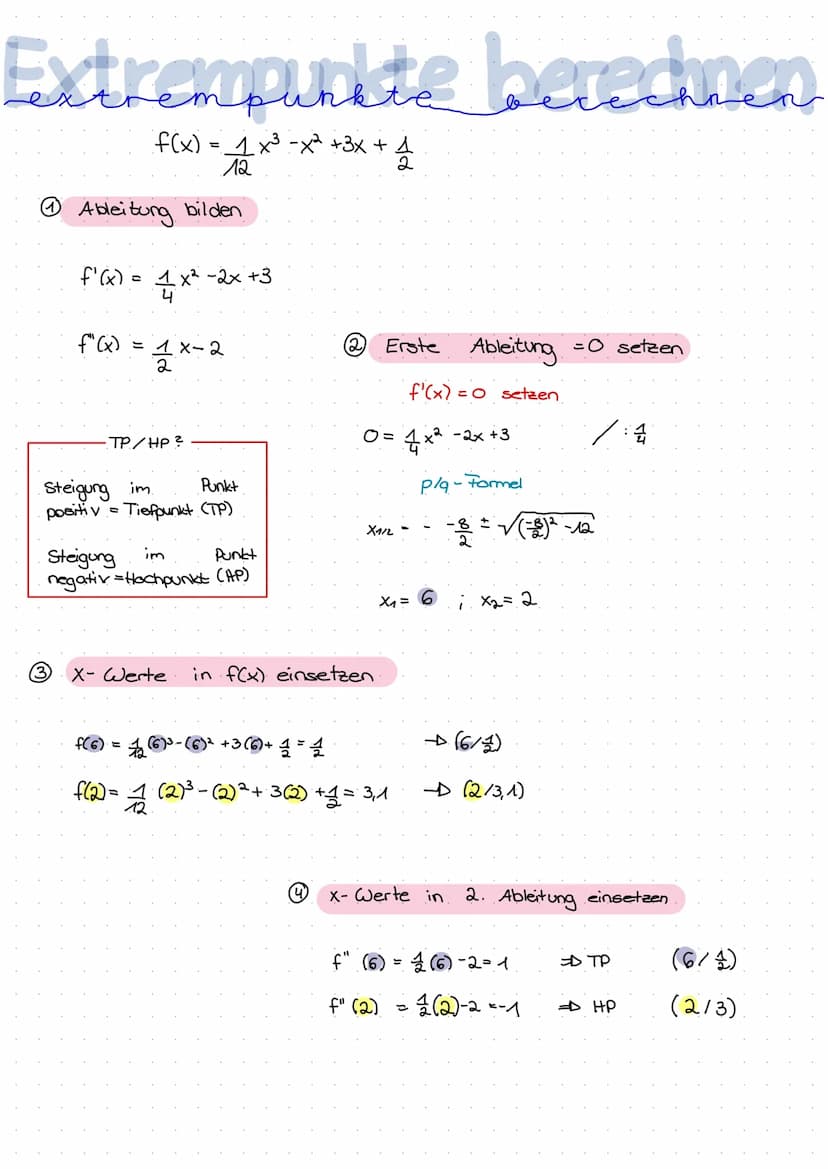 Extrempunkte berechnen
extrempunkte berechnen
f(x) = 1/12 x³ - x² + 3x + 1/2
① Ableitung bilden
f'(x) = 1/4 x² - 2x + 3
f"(x) = 1/2 x - 2
TP/HP?
Steigung im Punkt
positiv = Tiefpunkt (TP)
Steigung im Punkt
negativ = Hochpunkt (HP)
② Erste Ableitung = 0 setzen
f'(x) = 0 setzen
0 = 1/4 x² - 2x + 3 / : 1/4
p/q - Formel
x1/2 = - -8/2 ± √(-8/2)² - 12
x₁ = 6 ; x₂ = 2
③ x- Werte in f(x) einsetzen
f(6) = 1/12 (6)³ - (6)² + 3(6) + 1/2 = 1/2 → (6/ 1/2)
f(2) = 1/12 (2)³ - (2)² + 3(2) + 1/2 = 3,1 → (2/3,1)
④ x- Werte in 2. Ableitung einsetzen
f" (6) = 1/2 (6) - 2 = 1 ⇒ TP (6/ 1/2)
f" (2) = 1/2 (2) - 2 = -1 ⇒ HP (2/3)